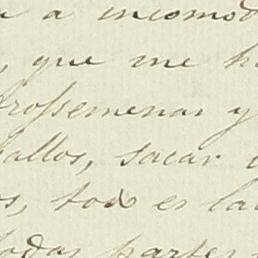 a incomod
, que me h
rossemenas y
allos, sacar
s, todo es la
todas partes